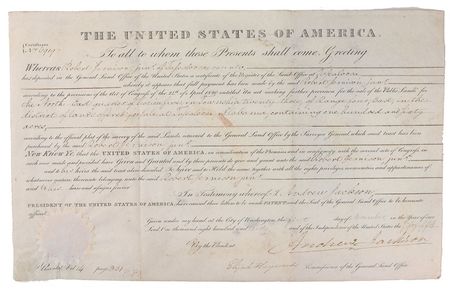 THE UNITED STATES OF AMERICA.
Certificate
To all to whom these Presents shall come, Greeting
Whereas Robert junr of Tuskaloosa county
has deposited in the General Land Office of the United States a certificate of the Register of the Land Office at Tuskaloosa
whereby it appears that full payment has been made by the said Robert junr
according to the provisions of the Act of Congress of the 24th of April 1820 entitled An act making further provision for the sale of the Public Lands for
the North East quarter of Section in Township twenty three of Range East in the
district of Lands at Tuskaloosa Alabama containing one hundred and
acres
according to the official plat of the survey of the said Lands returned to the General Land Office by the Surveyor General which said tract has been
purchased by the said Robert junr
Now Know Ye that the UNITED STATES OF AMERICA, in consideration of the Premises and in conformity with the several acts of Congress in
such case made and provided have Given and Granted and by these presents do give and grant unto the said Robert junr
and to his heirs the said tract above described To have and to Hold the same together with all the rights privileges immunities and appurtenances of
whatsoever nature thereunto belonging unto the said Robert junr
and to his heirs and assigns forever
In Testimony whereof I, Andrew Jackson
PRESIDENT OF THE UNITED STATES OF AMERICA, have caused these Letters to be made PATENT and the Seal of the General Land Office to be hereunto
affixed
Given under my hand at the City of Washington the day of in the Year of our
Lord One thousand eight hundred and and of the Independence of the United States the fifty
By the President
Andrew Jackson
Elijah Hayward Commissioner of the General Land Office
Vol 4 page